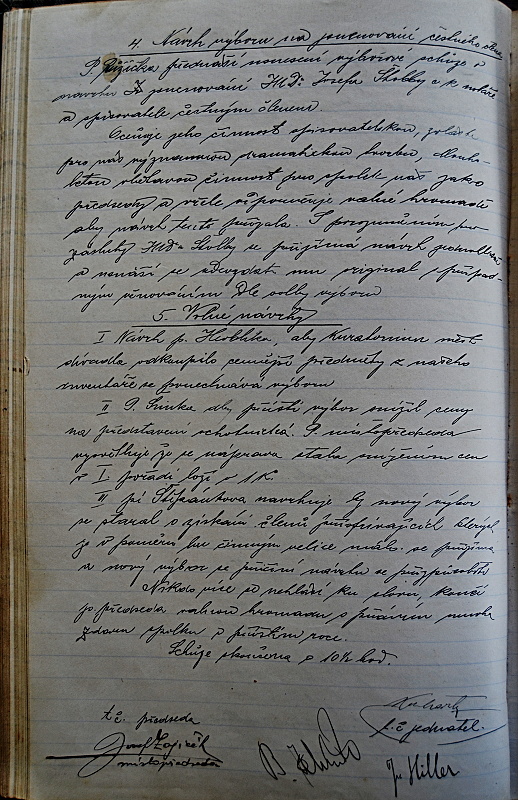 4. Návrh výboru na jmenování čestného člena
P. Růžička přednáší usnesení výborové schůze o
návrhu na jmenování JUDr Josefa Štolby c k notáře
a spisovatele čestným členem.
Oceňuje jeho činnost spisovatelskou, zvláště
pro nás významnou dramatickou tvorbu, dlouho-
letou obětavou činnost pro spolek náš jako
předsedy a vřele odporoučuje valné hromadě
aby návrh tento přijala. S porozuměním pro
zásluhy JUDr Štolby se přijímá návrh jednohlasně
a usnáší se odevzdati mu original s případ-
ným věnováním Dle volby výboru
5. Volné návrhy
I Návrh p. Heblíka, aby Kuratorium měst.
divadla odkoupilo cennější předměty z našeho
inventáře se ponechává výboru
II P. Sinka aby příští výbor snížil ceny
na představení ochotnická. P. místopředseda
vysvětluje že se náprava stala snížením cen
v I pořadí loží o 1 K.
II pí Štěpánkova navrhuje by nový výbor
se staral o získání členů přispívajících kterých
je v poměru ku činným velice málo. se přijímá
a nový výbor se příští návrhu se přizpůsobí
Nikdo více se nehlásí ku slovu, končí
p. předseda valnou hromadu s přáním mnoho
zdaru spolku v příštím roce.
Schůze skončena o 10½ hod.
t. č. předseda
Josef Zajíček
místopředseda
t. č. jednatel.
B.
Jos Hiller